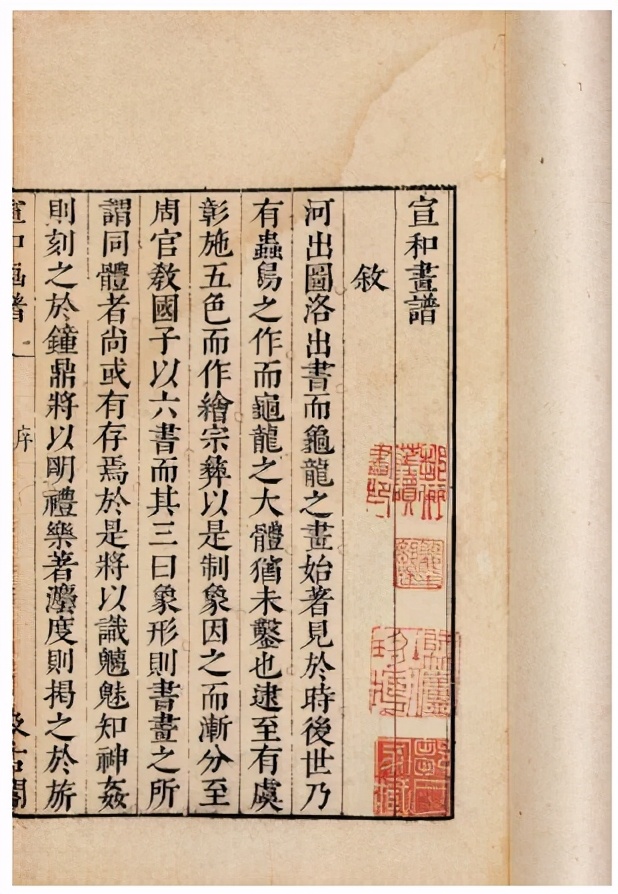 宣和畫譜
敘
河出圖洛出書而龜龍之畫始著見於時後世乃
有蟲鳥之作而龜龍之大體猶未鑿也逮至有虞
彰施五色而作繪宗彝以是制象因之而漸分至
周官教國子以六書而其三曰象形則書畫之所
謂同體者尚或有存焉於是將以識魑魅知神姦
則刻之於鐘鼎將以明禮樂著灋度則揭之於旂
宣和畫譜
序
汲古閣